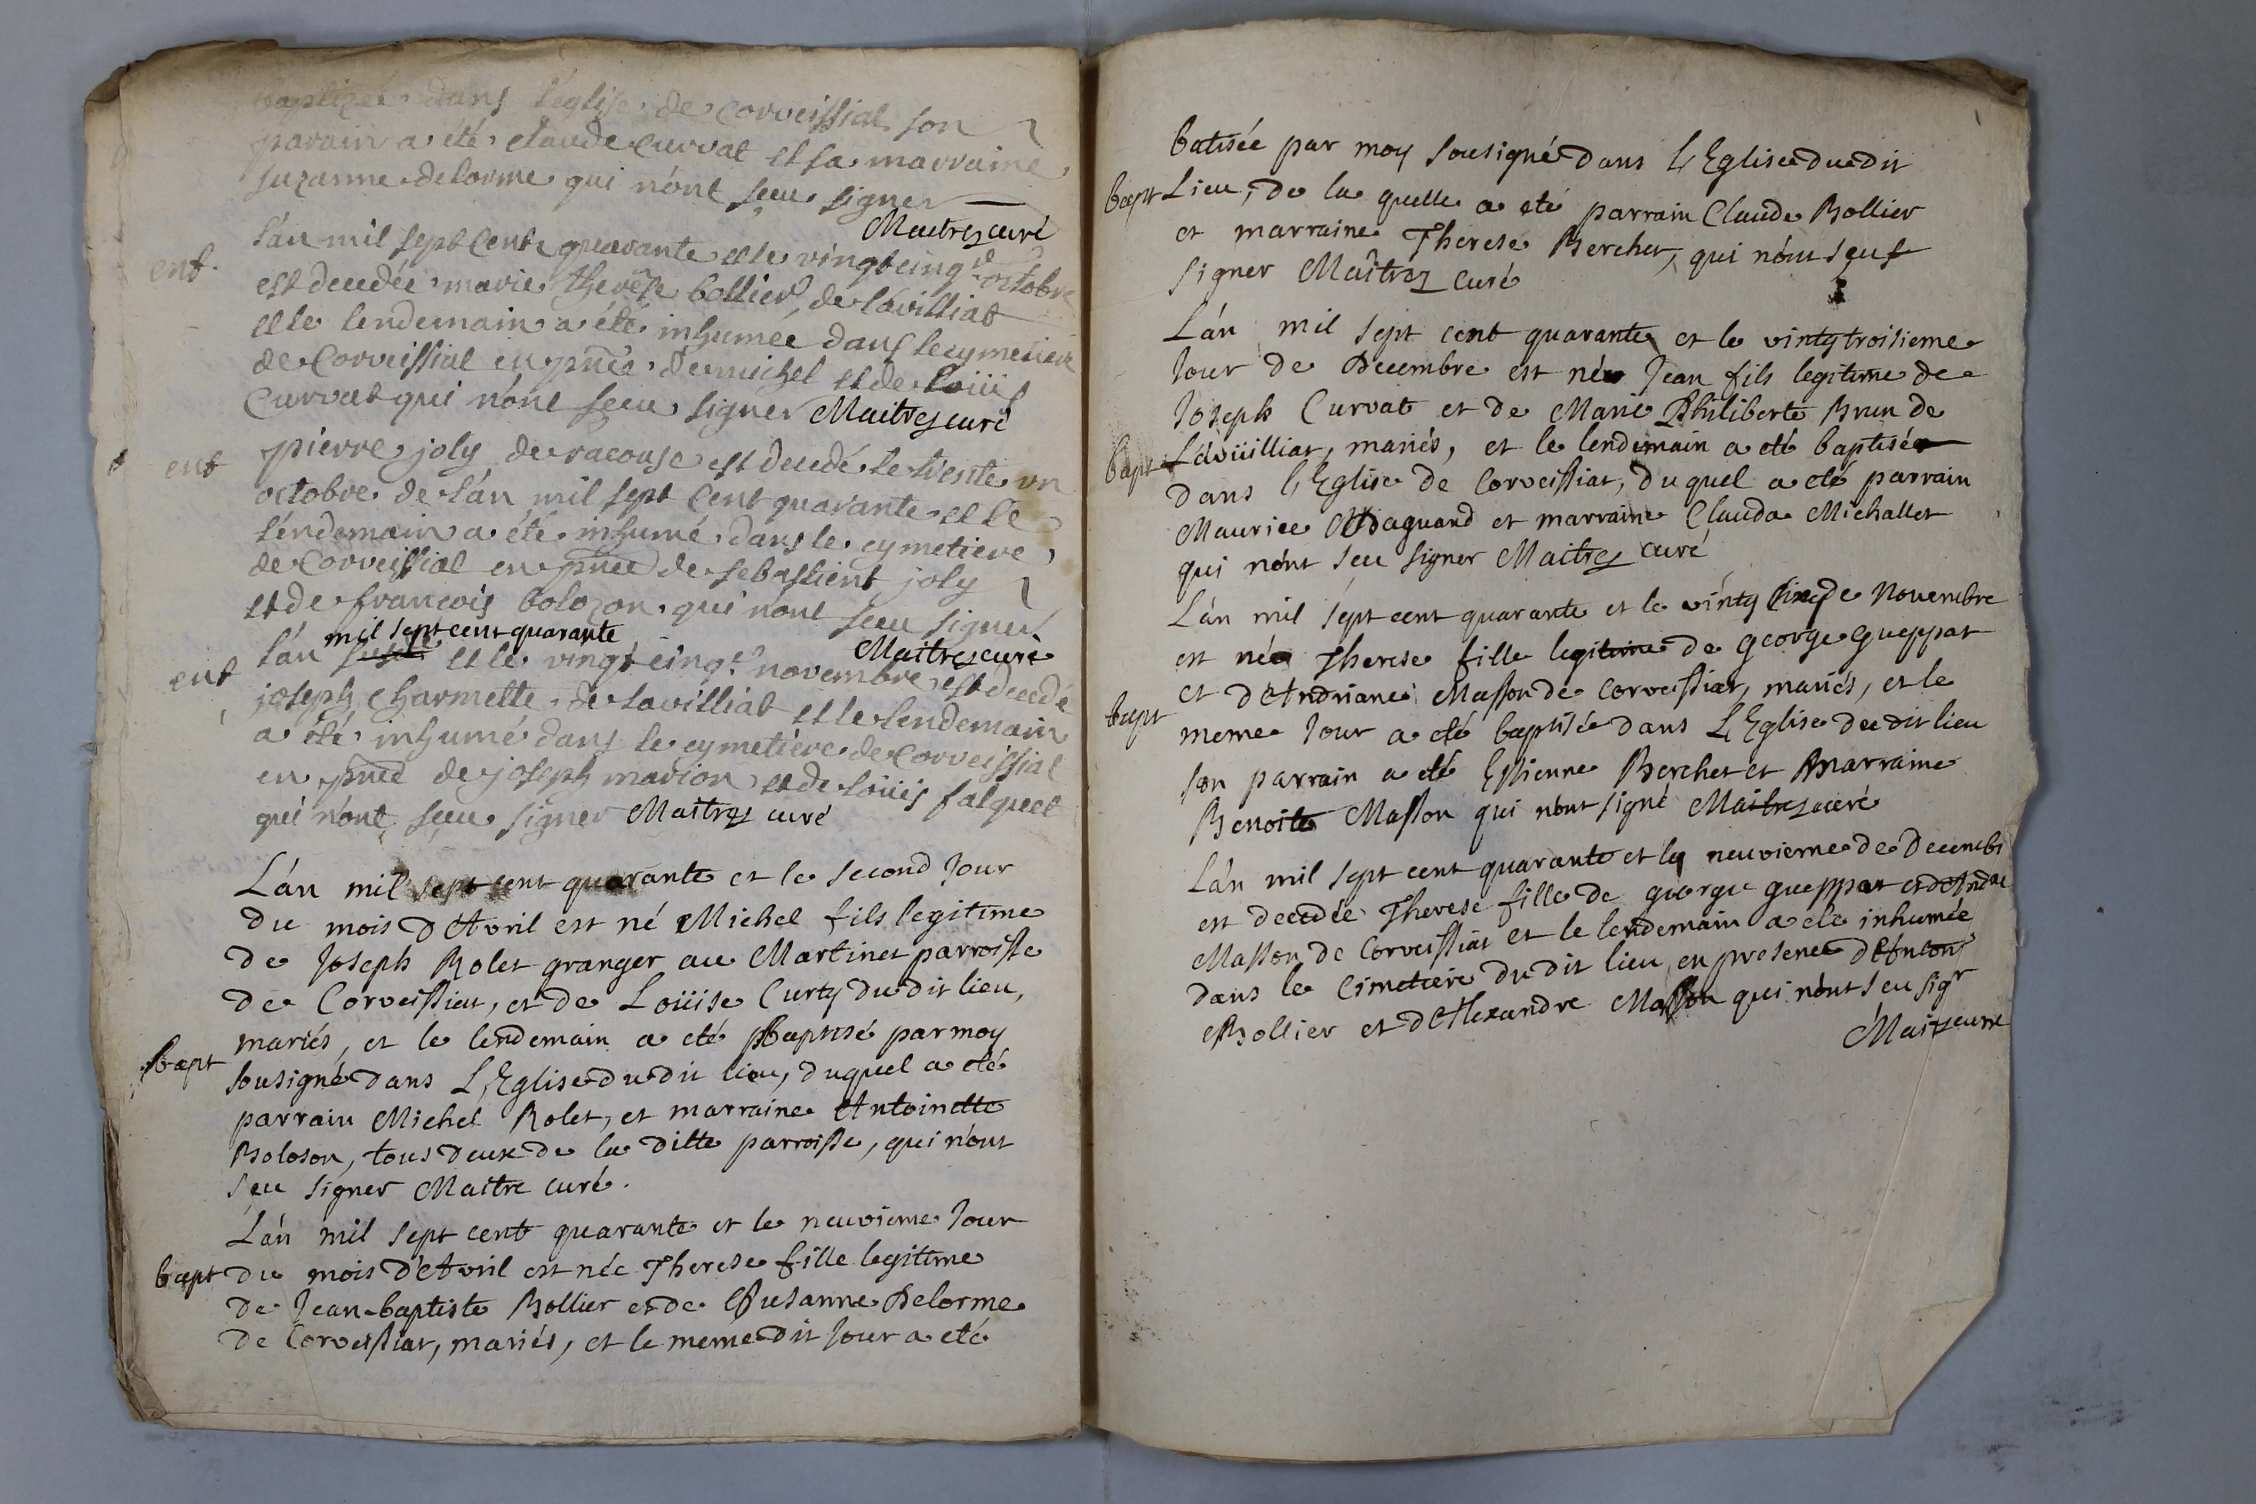 baptizée dans l'église de corveissiat son
parain a été claude Curvat et sa marraine
suzanne delorme qui n'ont sceu signer
Maitrez curé
ent.
l'án mil sept Cent quarante et le vingt cinqe octobre
est decedée marie therese bollier de lavilliat
et le lendemain a été inhumée dans le cymetiere
de Corveissiat en pnce de michel et de loüis
Curvat qui n'ónt sceu signer Maitrez curé
ent
pierre joly de racouse est decedé le trente un
octobre de l'án mil sept Cent quarante et le
lendemain a été inhumé dans le cymetiere
de Corveissiat en pnce de sebastient joly
et de francois bolozon qui n'ónt sceu signer
Maitrez curé
mil sept cent quarante
ent
l'án et le vingt cinqe novembre est decedé
joseph Charmette de lavilliat et le lendemain
a été inhumé dans le cymetiere de Corveissiat
en pnce de joseph marion et de loüis falquet
qui n'ónt sceu signer Maitrez curé
L'án mil sept cent quarante et le second Jour
du mois d'Avril est né Michel fils legitime
de Joseph Rolet granger au Martinet parroisse
de Corveissiat, et de Loüise Curty du dit lieu,
mariés, et le lendemain a eté Baptisé par moy
bapt
sousigné dans L'Eglise du dit lieu, duquel a eté
parrain Michel Rolet, et marraine Antoinette
Boloson, tous deux de la ditte parroisse, qui n'ont
seu signer Maitre curé.
L'án mil sept cent quarante et le neuvieme Jour
bapt du mois d'Avril est née Therese fille legitime
de Jean-baptiste Bollier et de Susanne Delorme
de Corveissiat, mariés, et le meme dit Jour a eté
batisée par moy sousigné dans L'Eglise du dit
bapt Lieu, de la quelle a eté parrain Claude Bollier
et marraine Therese Berchet, qui n'ónt seu
signer Maitrez curé
L'án mil sept cent quarante et le vinty troisieme
Jour de Decembre est né Jean fils legitime de
Joseph Curvat et de Marie Philiberte Brun de
bapt Lavüilliat, mariés, et le lendemain a eté baptisé
dans L'Eglise de Corveissiat, duquel a eté parrain
Maurice Maguard et marraine Clauda Michallet
qui n'ónt seu signer Maitrez curé
L'án mil sept cent quarante et le vinty cinq de Novembre
est née Therese fille legitime de george gueppat
et d'Andriane Masson de Corveissiat, mariés, et le
bapt
meme Jour a eté baptisée dans L'Eglise du dit lieu
son parrain a eté Estienne Berchet et Marraine
Benoite Masson qui n'ónt signé Maitrez curé
L'án mil sept cent quarante et le neuvieme de Decembr
est decedée Therese fille de george gueppat et d'Andne
Masson de Corveissiat et le lendemain a eté inhumée
dans le Cimetiere du dit lieu, en presence d'Anton
Bollier et d'Alexandre Masson qui n'ónt seu sigr
Maitrez curé